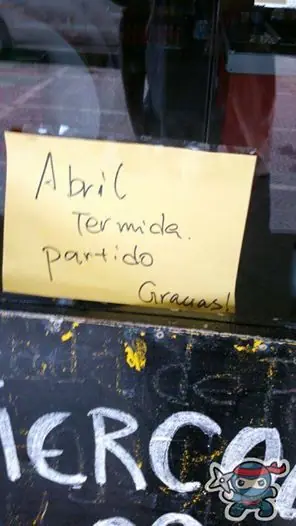 Abril
Termida.
partido
Gracias!
MERCA